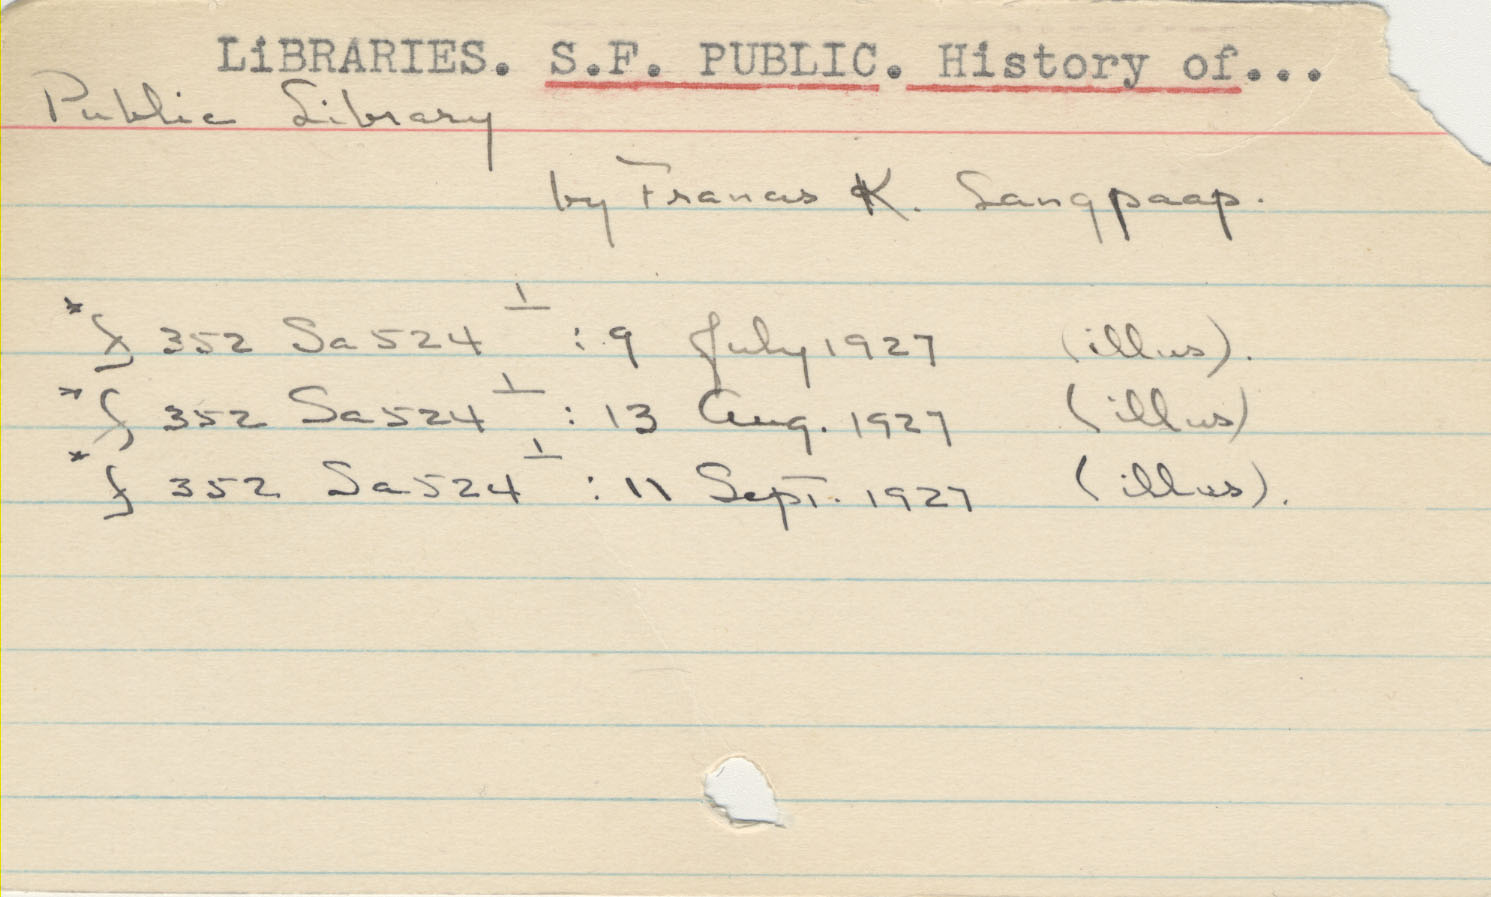 LiBRARIES. S.F. PUBLIC. History of...
Public Library
by Francis K. Langpaap.
*f 352 Sa524 1 : 9 July 1927 (illus).
*f 352 Sa524 1 : 13 Aug. 1927 (illus)
*f 352 Sa524 1 : 11 Sept. 1927 (illus).